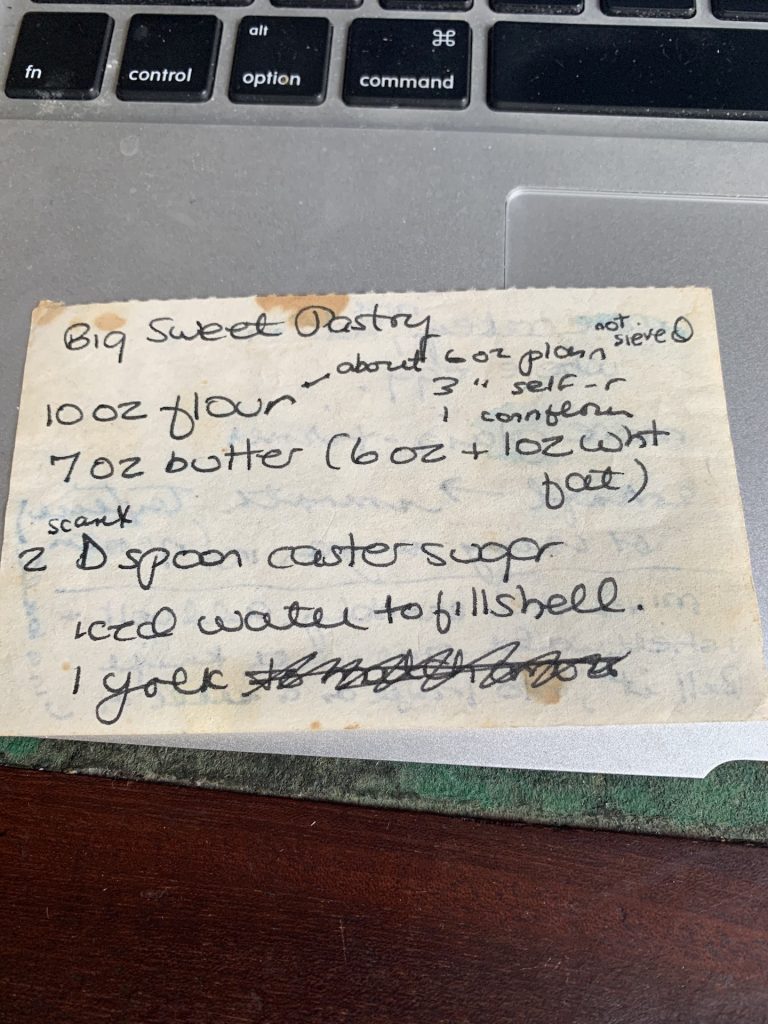 fn
control
alt
option
⌘
command
Big Sweet Pastry
not sieved
10 oz flour about 6 oz plain
3 " self-r
1 cornflour
7 oz butter (6 oz + 1 oz wht
fat)
scant
2 D spoon caster sugar
iced water to fill shell.
1 yolk